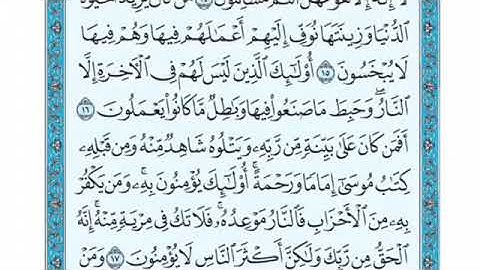 لَا إِلَٰهَ إِلَّا هُوَ فَهَلْ أَنتُم مُّسْلِمُونَ ١٤ مَن كَانَ يُرِيدُ ٱلْحَيَوٰةَ
ٱلدُّنْيَا وَزِينَتَهَا نُوَفِّ إِلَيْهِمْ أَعْمَٰلَهُمْ فِيهَا وَهُمْ فِيهَا
لَا يُبْخَسُونَ ١٥ أُو۟لَٰٓئِكَ ٱلَّذِينَ لَيْسَ لَهُمْ فِى ٱلْءَاخِرَةِ إِلَّا
ٱلنَّارُ ۖ وَحَبِطَ مَا صَنَعُوا۟ فِيهَا وَبَٰطِلٌ مَّا كَانُوا۟ يَعْمَلُونَ ١٦
أَفَمَن كَانَ عَلَىٰ بَيِّنَةٍ مِّن رَّبِّهِۦ وَيَتْلُوهُ شَاهِدٌ مِّنْهُ وَمِن قَبْلِهِۦ
كِتَٰبُ مُوسَىٰٓ إِمَامًا وَرَحْمَةً ۚ أُو۟لَٰٓئِكَ يُؤْمِنُونَ بِهِۦ ۚ وَمَن يَكْفُرْ
بِهِۦ مِنَ ٱلْأَحْزَابِ فَٱلنَّارُ مَوْعِدُهُۥ ۚ فَلَا تَكُ فِى مِرْيَةٍ مِّنْهُ ۚ إِنَّهُ
ٱلْحَقُّ مِن رَّبِّكَ وَلَٰكِنَّ أَكْثَرَ ٱلنَّاسِ لَا يُؤْمِنُونَ ١٧ وَمَنْ